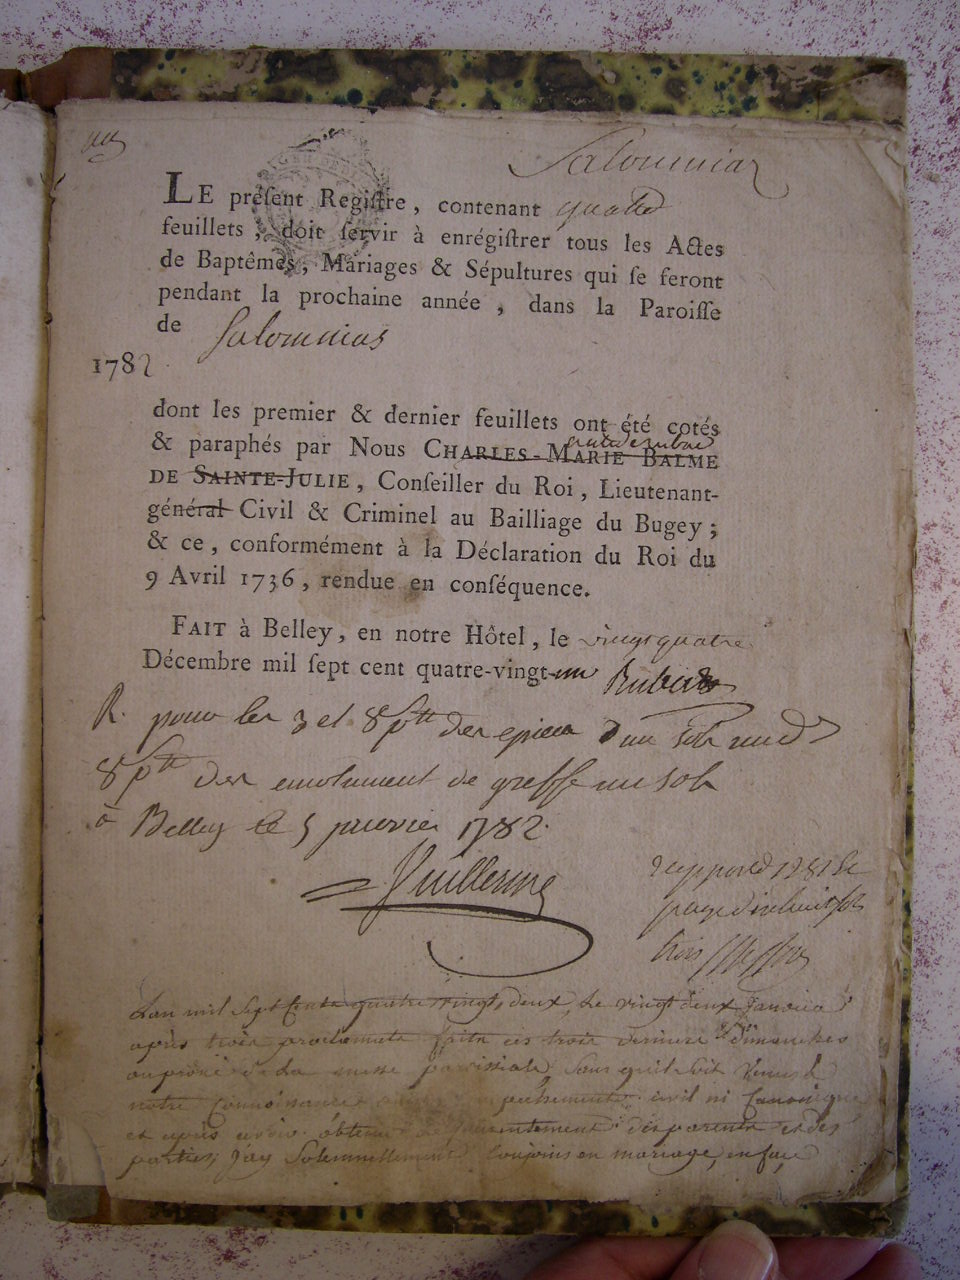 Salonniaz
LE préſent Regiſtre, contenant quatre
feuillets, doit ſervir à enrégiſtrer tous les Actes
de Baptêmes, Mariages & Sépultures qui ſe feront
pendant la prochaine année, dans la Paroiſſe
de Salonnias
1782
dont les premier & dernier feuillets ont été cotés
& paraphés par Nous CHARLES-MARIE BALME
DE SAINTE-JULIE, Conſeiller du Roi, Lieutenant-
général Civil & Criminel au Bailliage du Bugey;
& ce, conformément à la Déclaration du Roi du
9 Avril 1736, rendue en conſéquence.
FAIT à Belley, en notre Hôtel, le vingt quatre
Décembre mil ſept cent quatre-vingt-un
R. pour les 3 et 8 pte des epices d'un sols
8 pte des emolument de greffe un sols
à Belley le 5 janvier 1782.
Guillerme
Lan mil Sept Cents quatre vingts deux, Le vingt deux Janvier
après trois proclamats faits ces trois derniers dimanches
au prône de La messe paroissiale, Sans quil Soit Venus à
notre Connoisance civil ni Canonique
et après avoir obtenu consentement des parents et des
parties, Jay Solemnellement Conjoins en mariage, en face